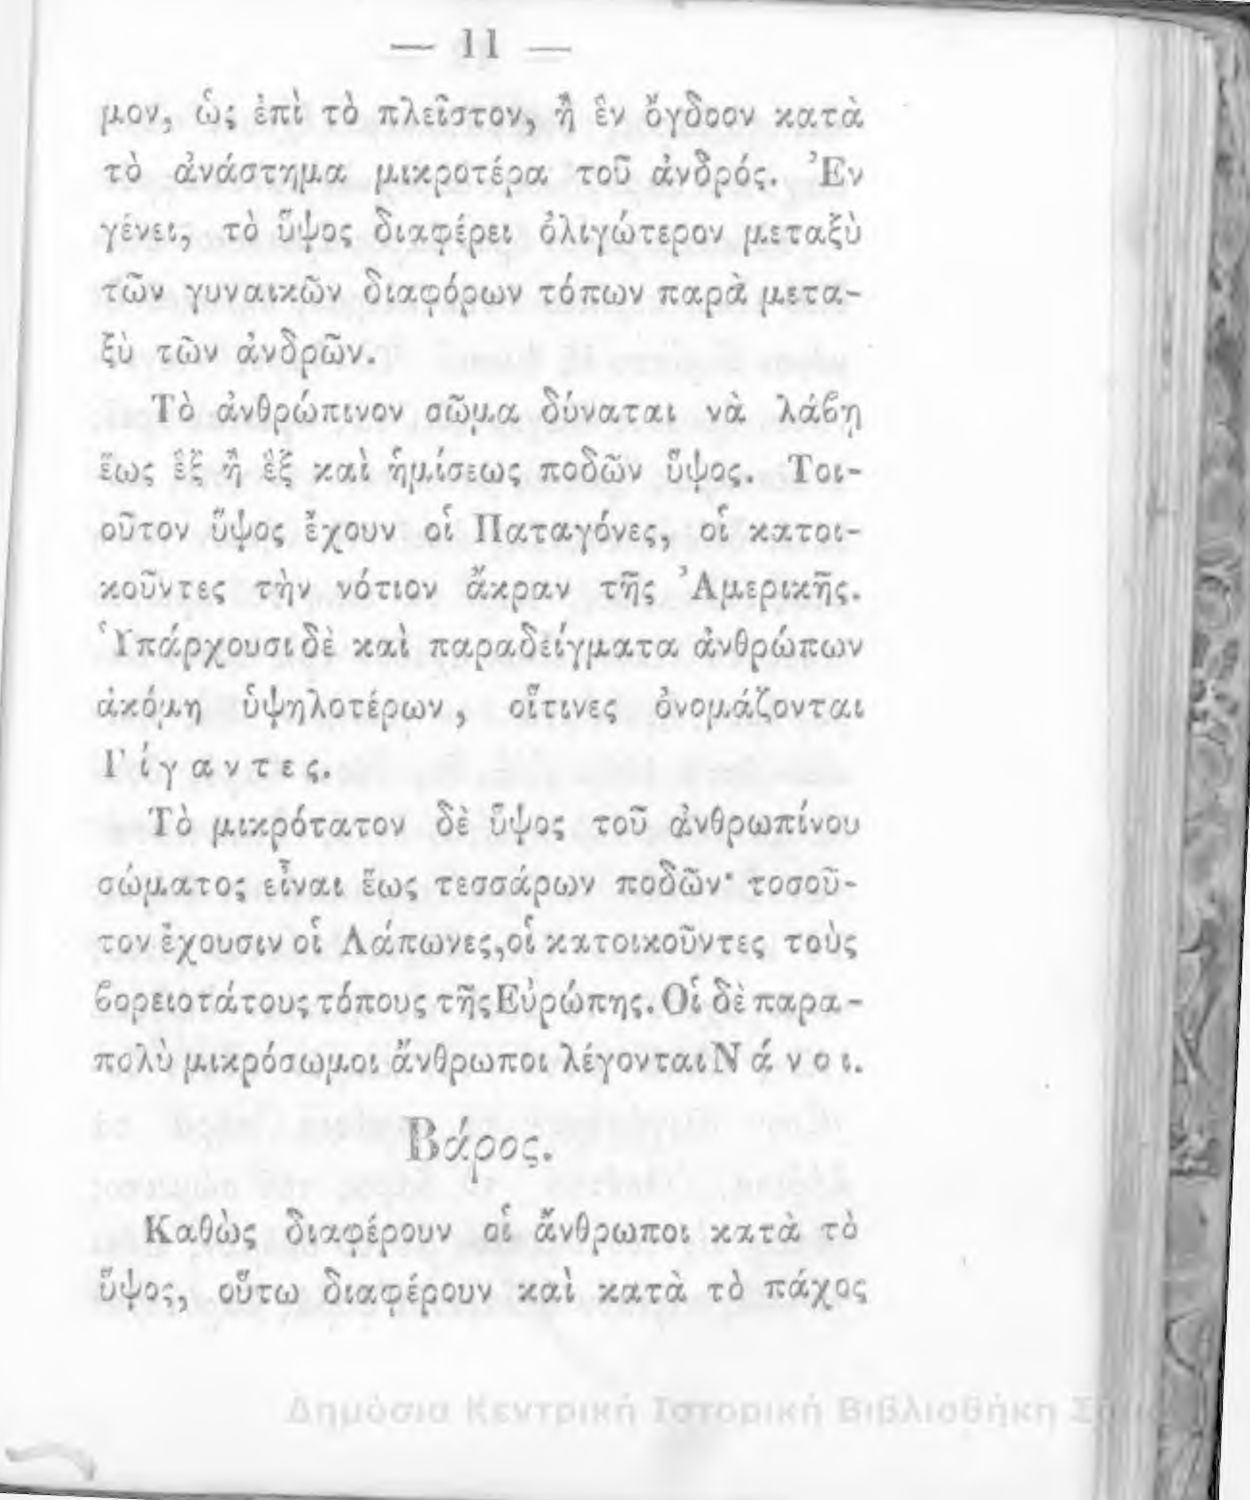 — 11 —
μον, ὡς ἐπὶ τὸ πλεῖστον, ἢ ἓν ὄγδοον κατὰ
τὸ ἀνάστημα μικροτέρα τοῦ ἀνδρός. Ἐν
γένει, τὸ ὕψος διαφέρει ὀλιγώτερον μεταξὺ
τῶν γυναικῶν διαφόρων τόπων παρὰ μετα-
ξὺ τῶν ἀνδρῶν.
Τὸ ἀνθρώπινον σῶμα δύναται νὰ λάβῃ
ἕως ἓξ ἢ ἓξ καὶ ἡμίσεως ποδῶν ὕψος. Τοι-
οῦτον ὕψος ἔχουν οἱ Παταγόνες, οἱ κατοι-
κοῦντες τὴν νότιον ἄκραν τῆς Ἀμερικῆς.
Ὑπάρχουσι δὲ καὶ παραδείγματα ἀνθρώπων
ἀκόμη ὑψηλοτέρων, οἵτινες ὀνομάζονται
Γίγαντες.
Τὸ μικρότατον δὲ ὕψος τοῦ ἀνθρωπίνου
σώματος εἶναι ἕως τεσσάρων ποδῶν· τοσοῦ-
τον ἔχουσιν οἱ Λάπωνες,οἱ κατοικοῦντες τοὺς
βορειοτάτους τόπους τῆς Εὐρώπης. Οἱ δὲ παρα-
πολὺ μικρόσωμοι ἄνθρωποι λέγονται Νάνοι.
Βάρος.
Καθὼς διαφέρουν οἱ ἄνθρωποι κατὰ τὸ
ὕψος, οὕτω διαφέρουν καὶ κατὰ τὸ πάχος
Δημόσια Κεντρική Ιστορική Βιβλιοθήκη